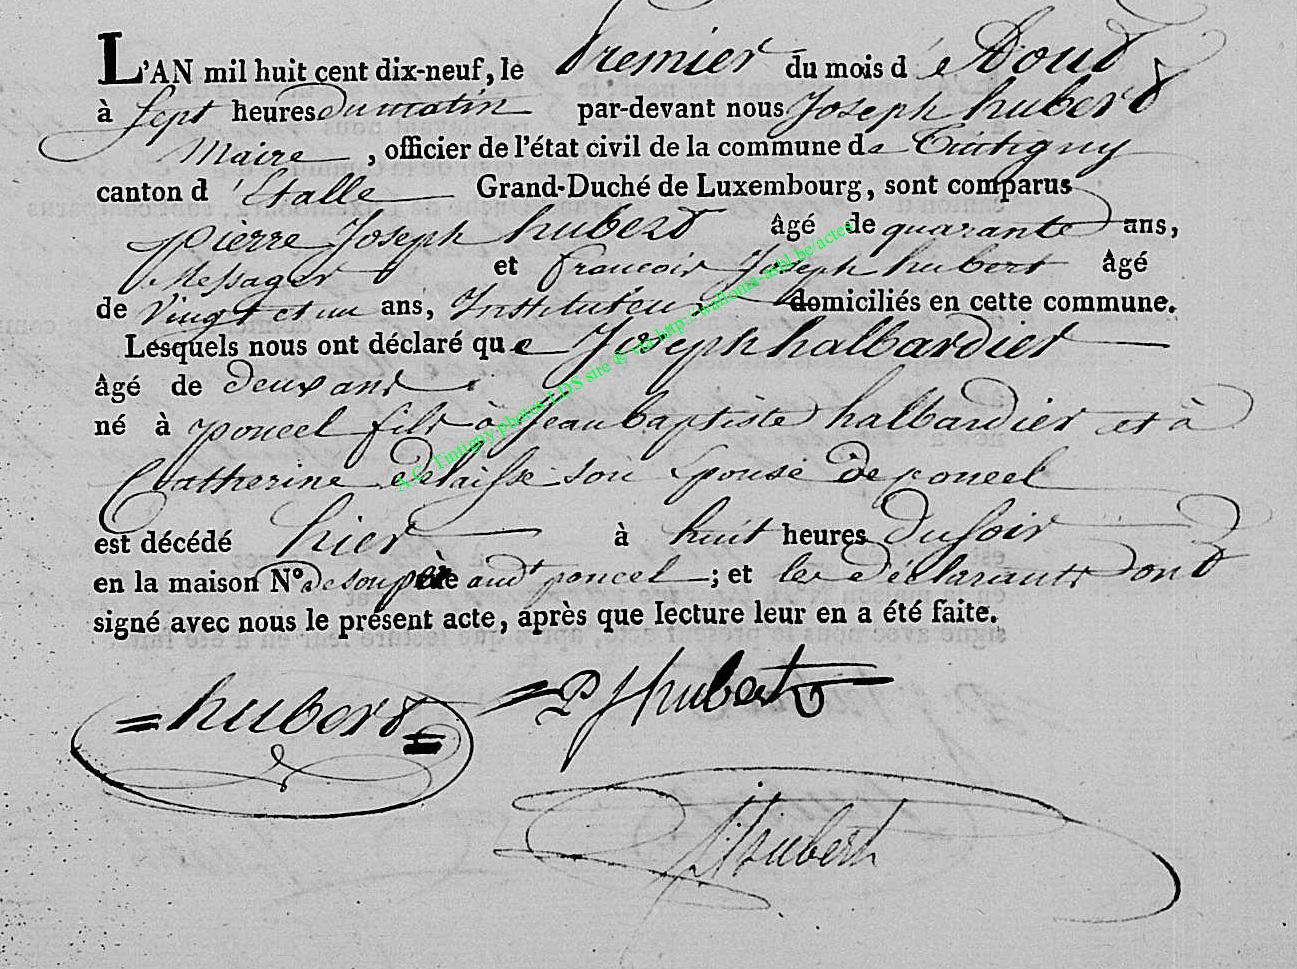 L'AN mil huit cent dix-neuf, le Premier du mois d'Aoud
à Sept heures du matin par-devant nous Joseph huberd
Maire, officier de l'état civil de la commune de Tintigny
canton d'Etalle Grand-Duché de Luxembourg, sont comparus
pierre Joseph huberd âgé de quarante ans,
Messager et francois Joseph hubert âgé
de Vingt et un ans, Instituteur domiciliés en cette commune.
Lesquels nous ont déclaré que Joseph halbardier
âgé de deux ans
né à poncel fils à Jean baptiste halbardier et à
Catherine delaisse son epouse de poncel
est décédé hier à huit heures du soir
en la maison N° de son père audt poncel ; et les déclarants ond
signé avec nous le présent acte, après que lecture leur en a été faite.
huberd P J hubert
hubert
A.C. Tintigny photos EDS site © via http://wallonia-asbl.be/actes